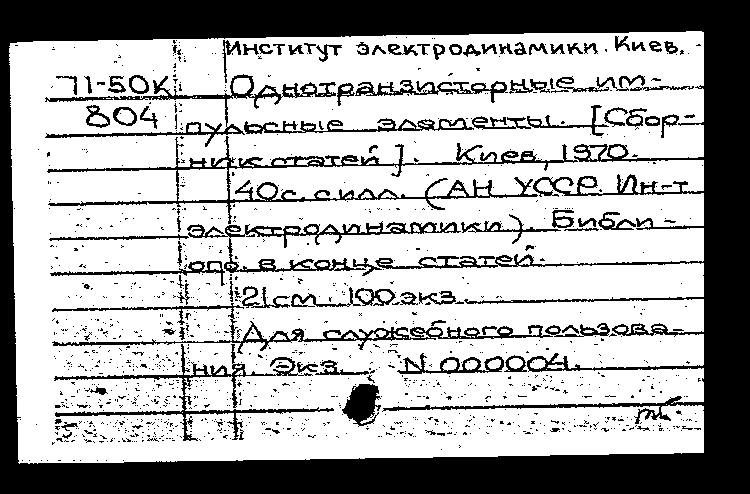 Институт электродинамики. Киев.
71-50К Однотранзисторные им-
804 пульсные элементы. [Сбор-
ник статей]. Киев, 1970.
40с. с илл. (АН УССР. Ин-т
электродинамики). Библи-
огр. в конце статей.
21см. 100экз.
Для служебного пользова-
ния. Экз. N 000004.